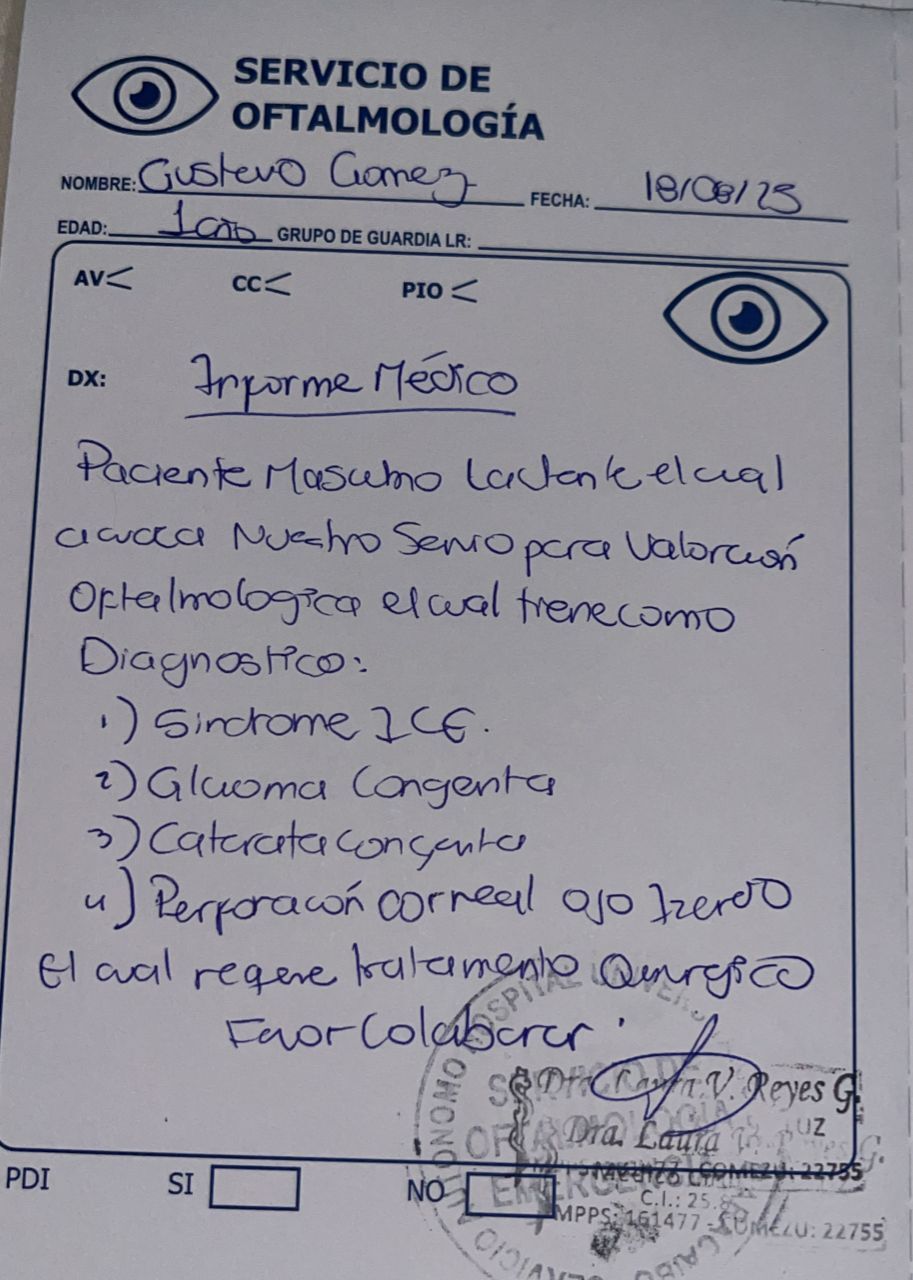 SERVICIO DE
OFTALMOLOGÍA
NOMBRE: Gustavo Gomez FECHA: 18/08/25
EDAD: 1 año GRUPO DE GUARDIA LR:
AV< CC< PIO <
DX: Informe Médico
Paciente Masculino Lactante el cual
acude a Nuestro Servicio para Valoración
Oftalmologica el cual tiene como
Diagnostico:
1) Sindrome ICE.
2) Glaucoma Congenita
3) Catarata congenita
4) Perforación corneal ojo Izquierdo
El cual requiere tratamiento Quirurgico
Favor Colaborar.
Reyes G.
LUZ
Dra. Laura V. Reyes G.
COMEZU: 22755
C.I.: 25.
MPPS: 161477 - COMEZU: 22755
PDI SI NO